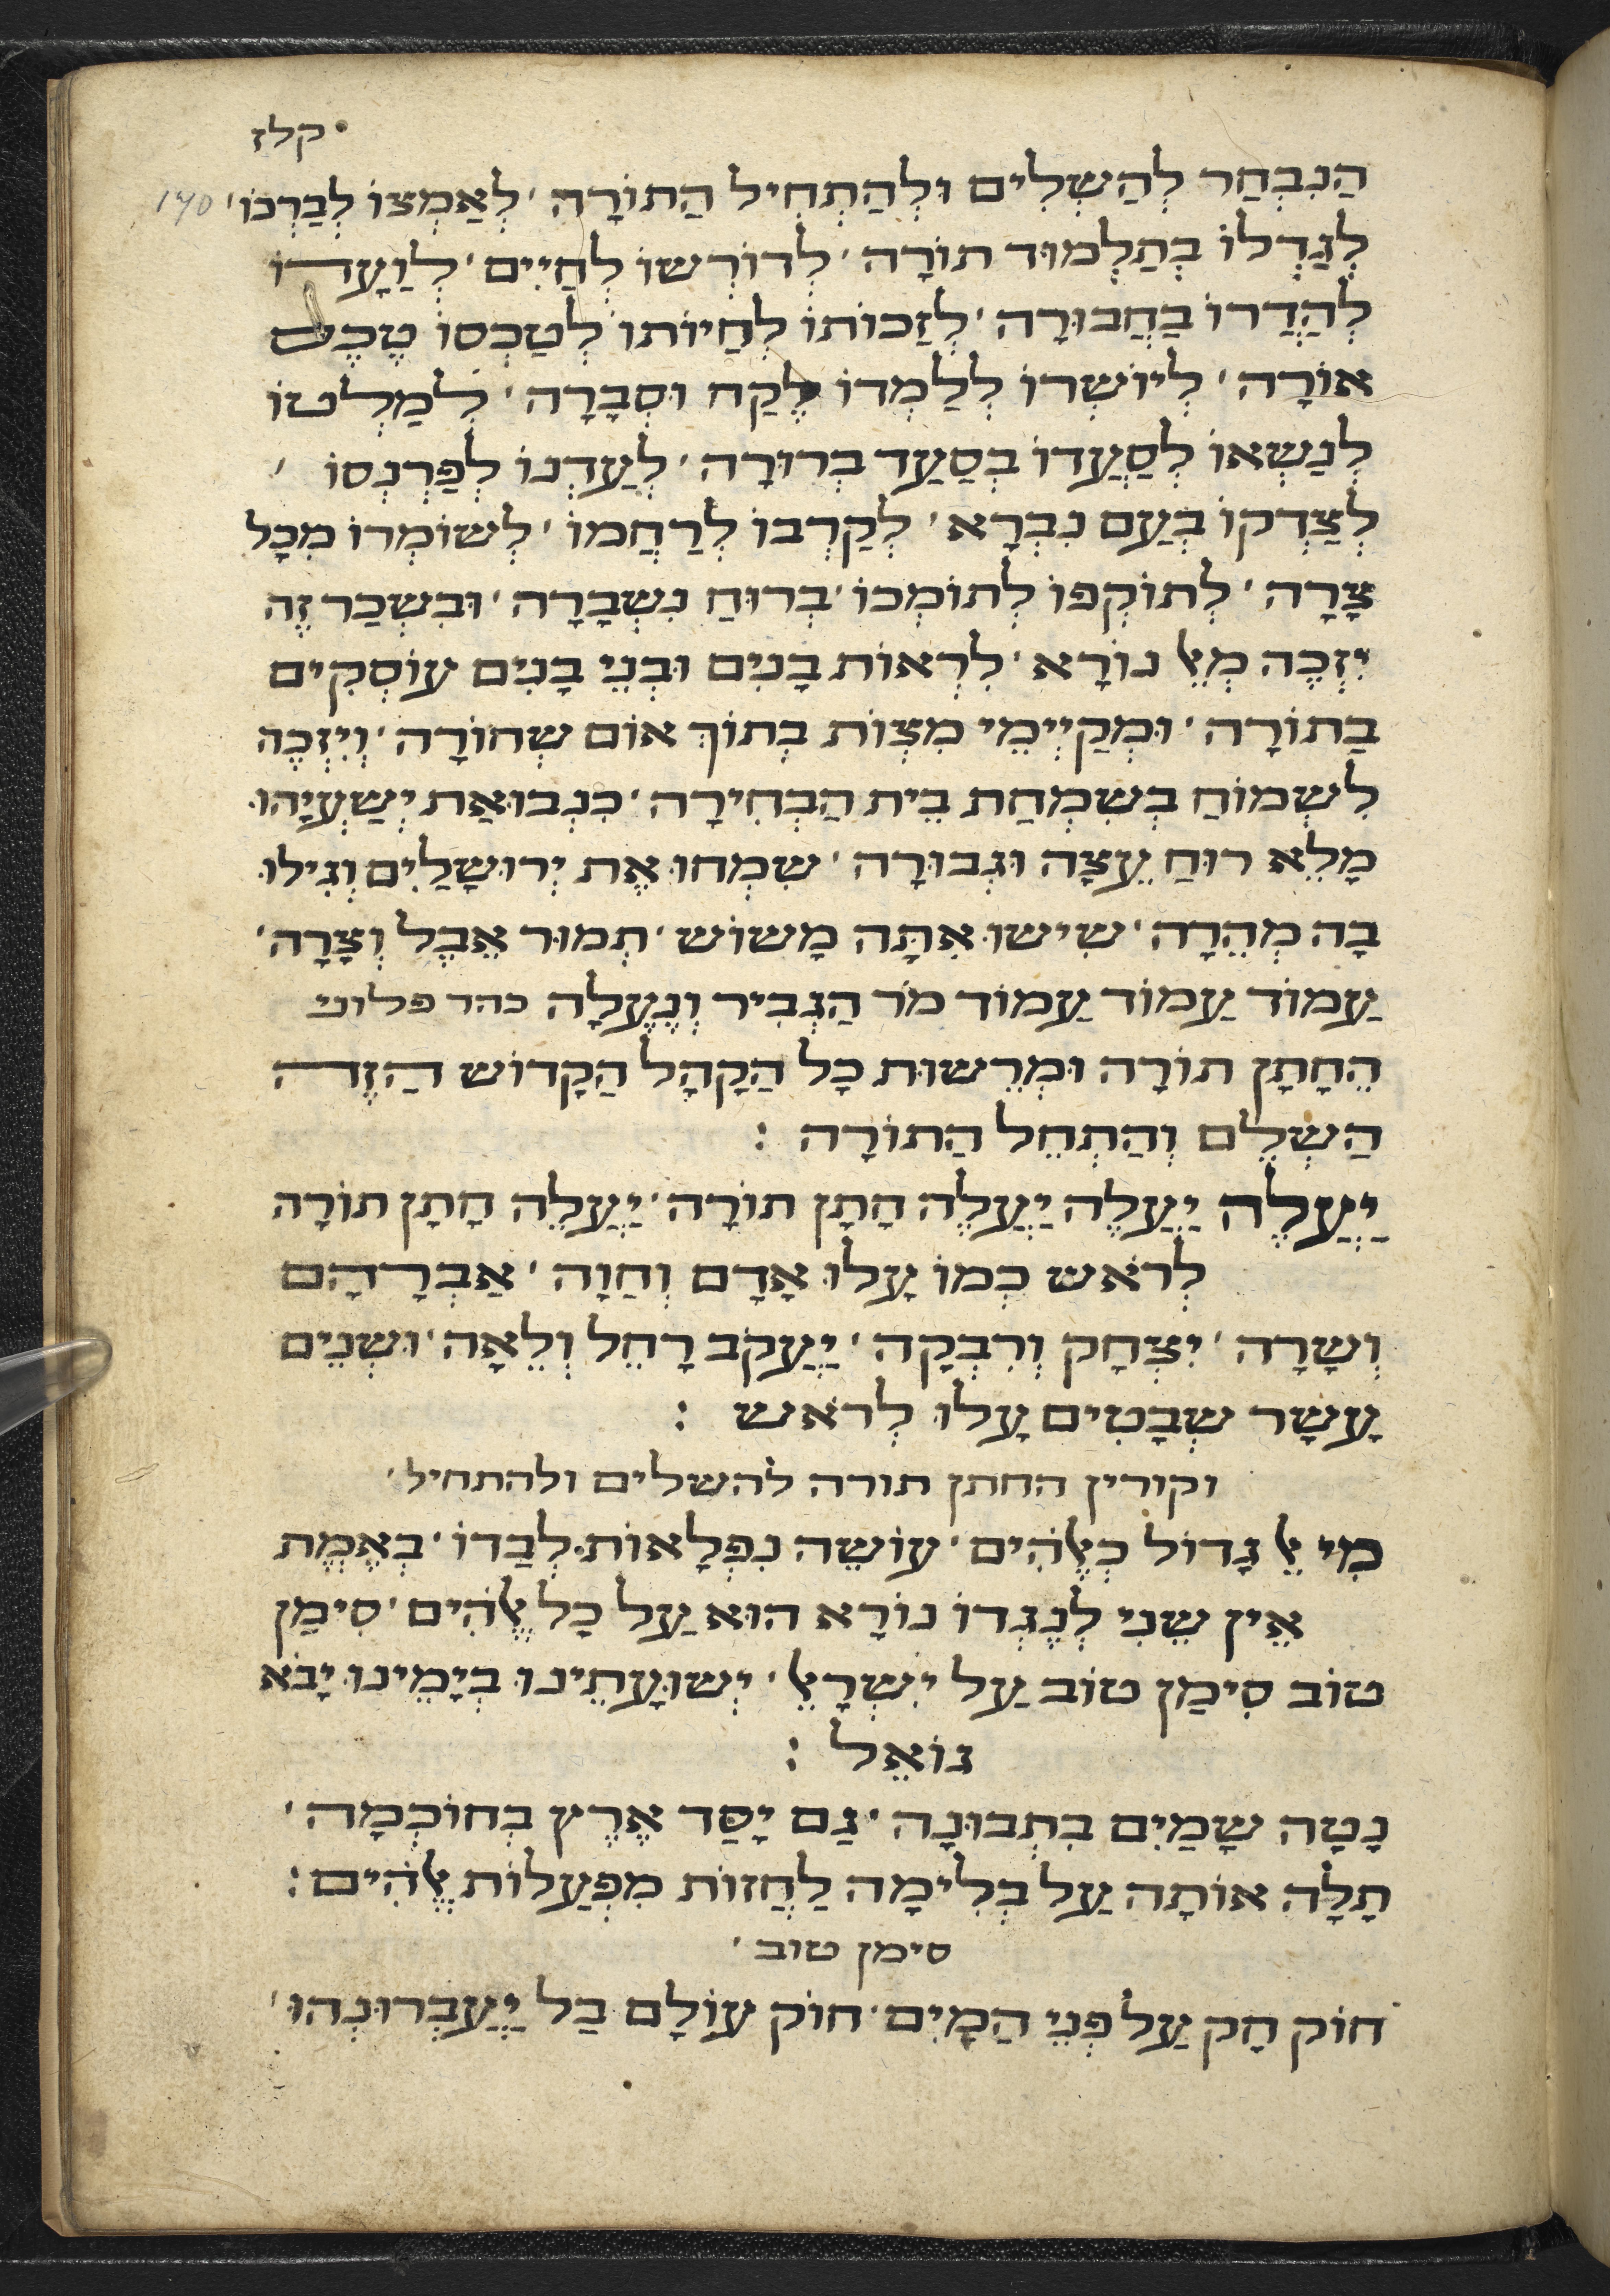 קלז
170
הַנִבְחַר לְהַשְׁלִים וּלְהַתְחִיל הַתוֹרָה׳ לְאַמְצוֹ לְבָרְכוֹ׳
לְגַדְלוֹ בְּתַלְמוּד תוֹרָה׳ לְדוֹרְשוֹ לְחַיִים׳ לְוַעֲדוֹ
לְהַדְרוֹ בַחֲבוּרָה׳ לְזַכוֹתוֹ לְחַיוֹתוֹ לְטַכְסוֹ טֶכֶס
אוֹרָה׳ לְיוֹשְׁרוֹ לְלַמְדוֹ לֶקַח וּסְבָרָה׳ לְמַלְטוֹ
לְנַשְאוֹ לְסַעֲדוֹ בְסַעַד בְרוּרָה׳ לְעַדְנוֹ לְפַרְנְסוֹ׳
לְצַדְקוֹ בְעַם נִבְרָא׳ לְקַרְבוֹ לְרַחֲמוֹ׳ לְשוֹמְרוֹ מִכָל
צָרָה׳ לְתוֹקְפוֹ לְתוֹמְכוֹ׳ בְרוּחַ נִשְׁבָרָה׳ וּבִשְכַר זֶה
יִזְכֶּה מְאֵל נוֹרָא׳ לִרְאוֹת בָנִים וּבְנֵי בָנִים עוֹסְקִים
בַתוֹרָה׳ וּמְקַיְימֵי מִצְוֹת בְתוֹךְ אוֹם שְחוֹרָה׳ וְיִזְכֶּה
לִשְמוֹחַ בְשִמְחַת בֵית הַבְחִירָה׳ כִנְבוּאַת יְשַעְיָהוּ
מָלֵא רוּחַ עֵצָה וּגְבוּרָה׳ שִמְחוּ אֶת יְרוּשָלַיִם וְגִילוּ
בָה מְהֵרָה׳ שִישוּ אִתָּה מָשוֹש׳ תְמוּר אֵבֶל וְצָרָה׳
עֲמוֹד עֲמוֹד עֲמוֹד מֹר הַגְבִיר וְנַעֲלָה כהר פלוני
הַחָתָן תוֹרָה וּמְרֵשוּת כָל הַקָהָל הַקָדוֹש הַזֶה
הַשְלֵם וְהַתְחֵל הַתוֹרָה :
יַעֲלֶה יַעֲלֶה יַעֲלֶה חָתָן תוֹרָה׳ יַעֲלֶה חָתָן תוֹרָה
לְרֹאש כְמוֹ עָלוּ אָדָם וְחַוָה׳ אַבְרָהָם
וְשָרָה׳ יִצְחָק וְרִבְקָה׳ יַעֲקֹב רָחֵל וְלֵאָה׳ וּשְנֵים
עָשָר שְבָטִים עָלוּ לְרֹאש :
וקורין החתן תורה להשלים ולהתחיל׳
מִי אֵל גָדוֹל כְאֱלֹהִים׳ עוֹשֵה נִפְלָאוֹת לְבַדוֹ׳ בְאֶמֶת
אֵין שֵנִי לְנֶגְדוֹ נוֹרָא הוּא עַל כָל אֱלֹהִים׳ סִימַן
טוֹב סִימַן טוֹב עַל יִשְרָאֵל׳ יְשוּעָתֵינוּ בְיָמֵינוּ יָבֹא
גוֹאֵל :
נָטָה שָמַיִם בִתְבוּנָה׳ גַם יָסַד אֶרֶץ בְחוֹכְמָה׳
תָלָה אוֹתָה עַל בְלִימָה לַחֲזוֹת מִפְעֲלוֹת אֱלֹהִים :
סימן טוב׳
חוֹק חָק עַל פְנֵי הַמָיִם׳ חוֹק עוֹלָם בַל יַעֲבְרוּנְהוּ׳